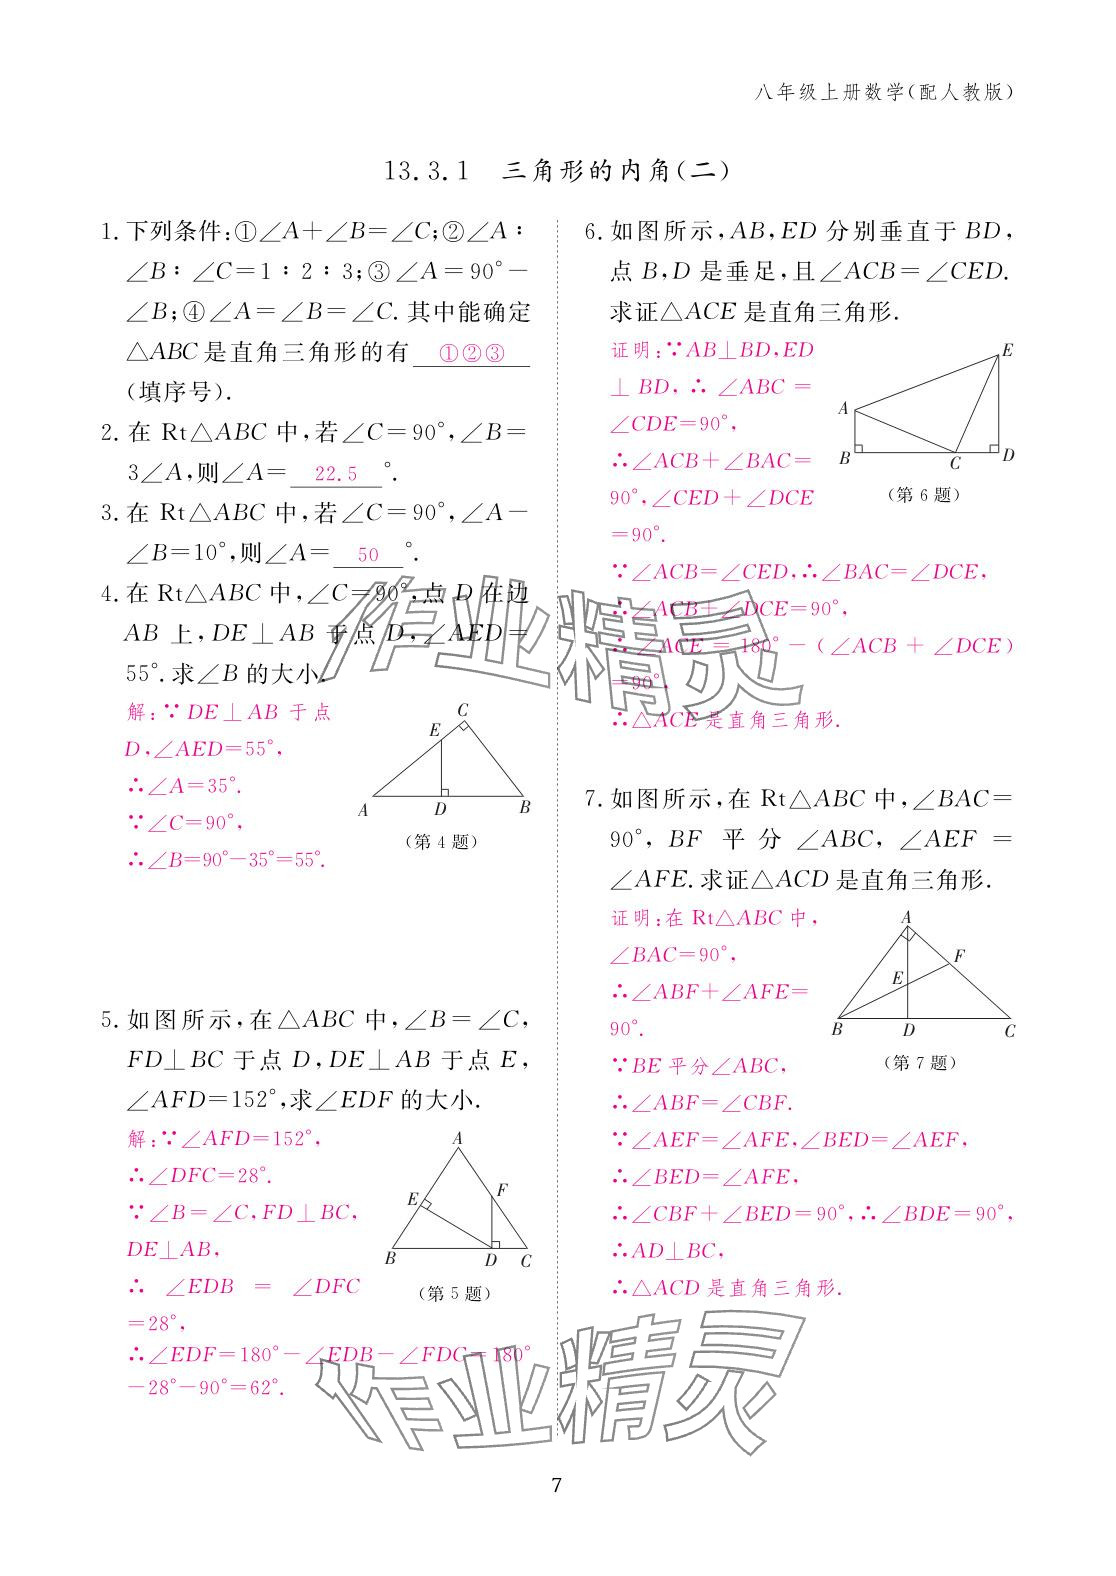 八年级上册数学(配人教版)
13.3.1 三角形的内角(二)
1. 下列条件:①∠A+∠B=∠C;②∠A∶
∠B∶∠C=1∶2∶3;③∠A=90°-
∠B;④∠A=∠B=∠C.其中能确定
△ABC是直角三角形的有 ①②③
(填序号).
2. 在 Rt△ABC 中,若∠C=90°,∠B=
3∠A,则∠A= 22.5 °.
3. 在 Rt△ABC 中,若∠C=90°,∠A-
∠B=10°,则∠A= 50 °.
4. 在 Rt△ABC 中,∠C=90°,点 D 在边
AB 上,DE⊥AB 于点 D,∠AED=
55°.求∠B 的大小.
解:∵DE⊥AB 于点
D,∠AED=55°,
∴∠A=35°.
∵∠C=90°,
∴∠B=90°-35°=55°.
C
E
A
D
B
(第 4 题)
5. 如图所示,在△ABC 中,∠B=∠C,
FD⊥BC 于点 D,DE⊥AB 于点 E,
∠AFD=152°,求∠EDF 的大小.
解:∵∠AFD=152°,
∴∠DFC=28°.
∵∠B=∠C,FD⊥BC,
DE⊥AB,
∴ ∠EDB = ∠DFC
=28°,
∴∠EDF=180°-∠EDB-∠FDC=180°
-28°-90°=62°.
A
E
F
B
D
C
(第 5 题)
6. 如图所示,AB,ED 分别垂直于 BD,
点 B,D 是垂足,且∠ACB=∠CED.
求证△ACE 是直角三角形.
证明:∵AB⊥BD,ED
⊥BD,∴∠ABC=
∠CDE=90°,
∴∠ACB+∠BAC=
90°,∠CED+∠DCE
=90°.
∵∠ACB=∠CED,∴∠BAC=∠DCE,
∴∠ACB+∠DCE=90°,
∴∠ACE=180°-(∠ACB+∠DCE)
=90°.
∴△ACE 是直角三角形.
E
A
B
C
D
(第 6 题)
7. 如图所示,在 Rt△ABC 中,∠BAC=
90°,BF 平分∠ABC,∠AEF=
∠AFE.求证△ACD 是直角三角形.
证明:在 Rt△ABC 中,
∠BAC=90°,
∴∠ABF+∠AFE=
90°.
∵BE 平分∠ABC,
∴∠ABF=∠CBF.
∵∠AEF=∠AFE,∠BED=∠AEF,
∴∠BED=∠AFE,
∴∠CBF+∠BED=90°,∴∠BDE=90°,
∴AD⊥BC,
∴△ACD 是直角三角形.
A
F
E
B
D
C
(第 7 题)
作业精灵
作业精灵
7